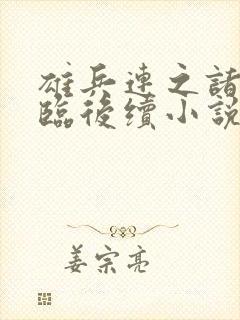 雄兵連之諸
臨後續小說
姜宗亮